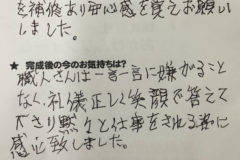 を補修あり安心感を覚えお願い
しました。
★ 完成後の今のお気持ちは?
職人さんは一言一言に嫌がること
なく、礼儀正しく笑顔で答えて
下さり黙々と仕事をされる姿に
感心致しました。